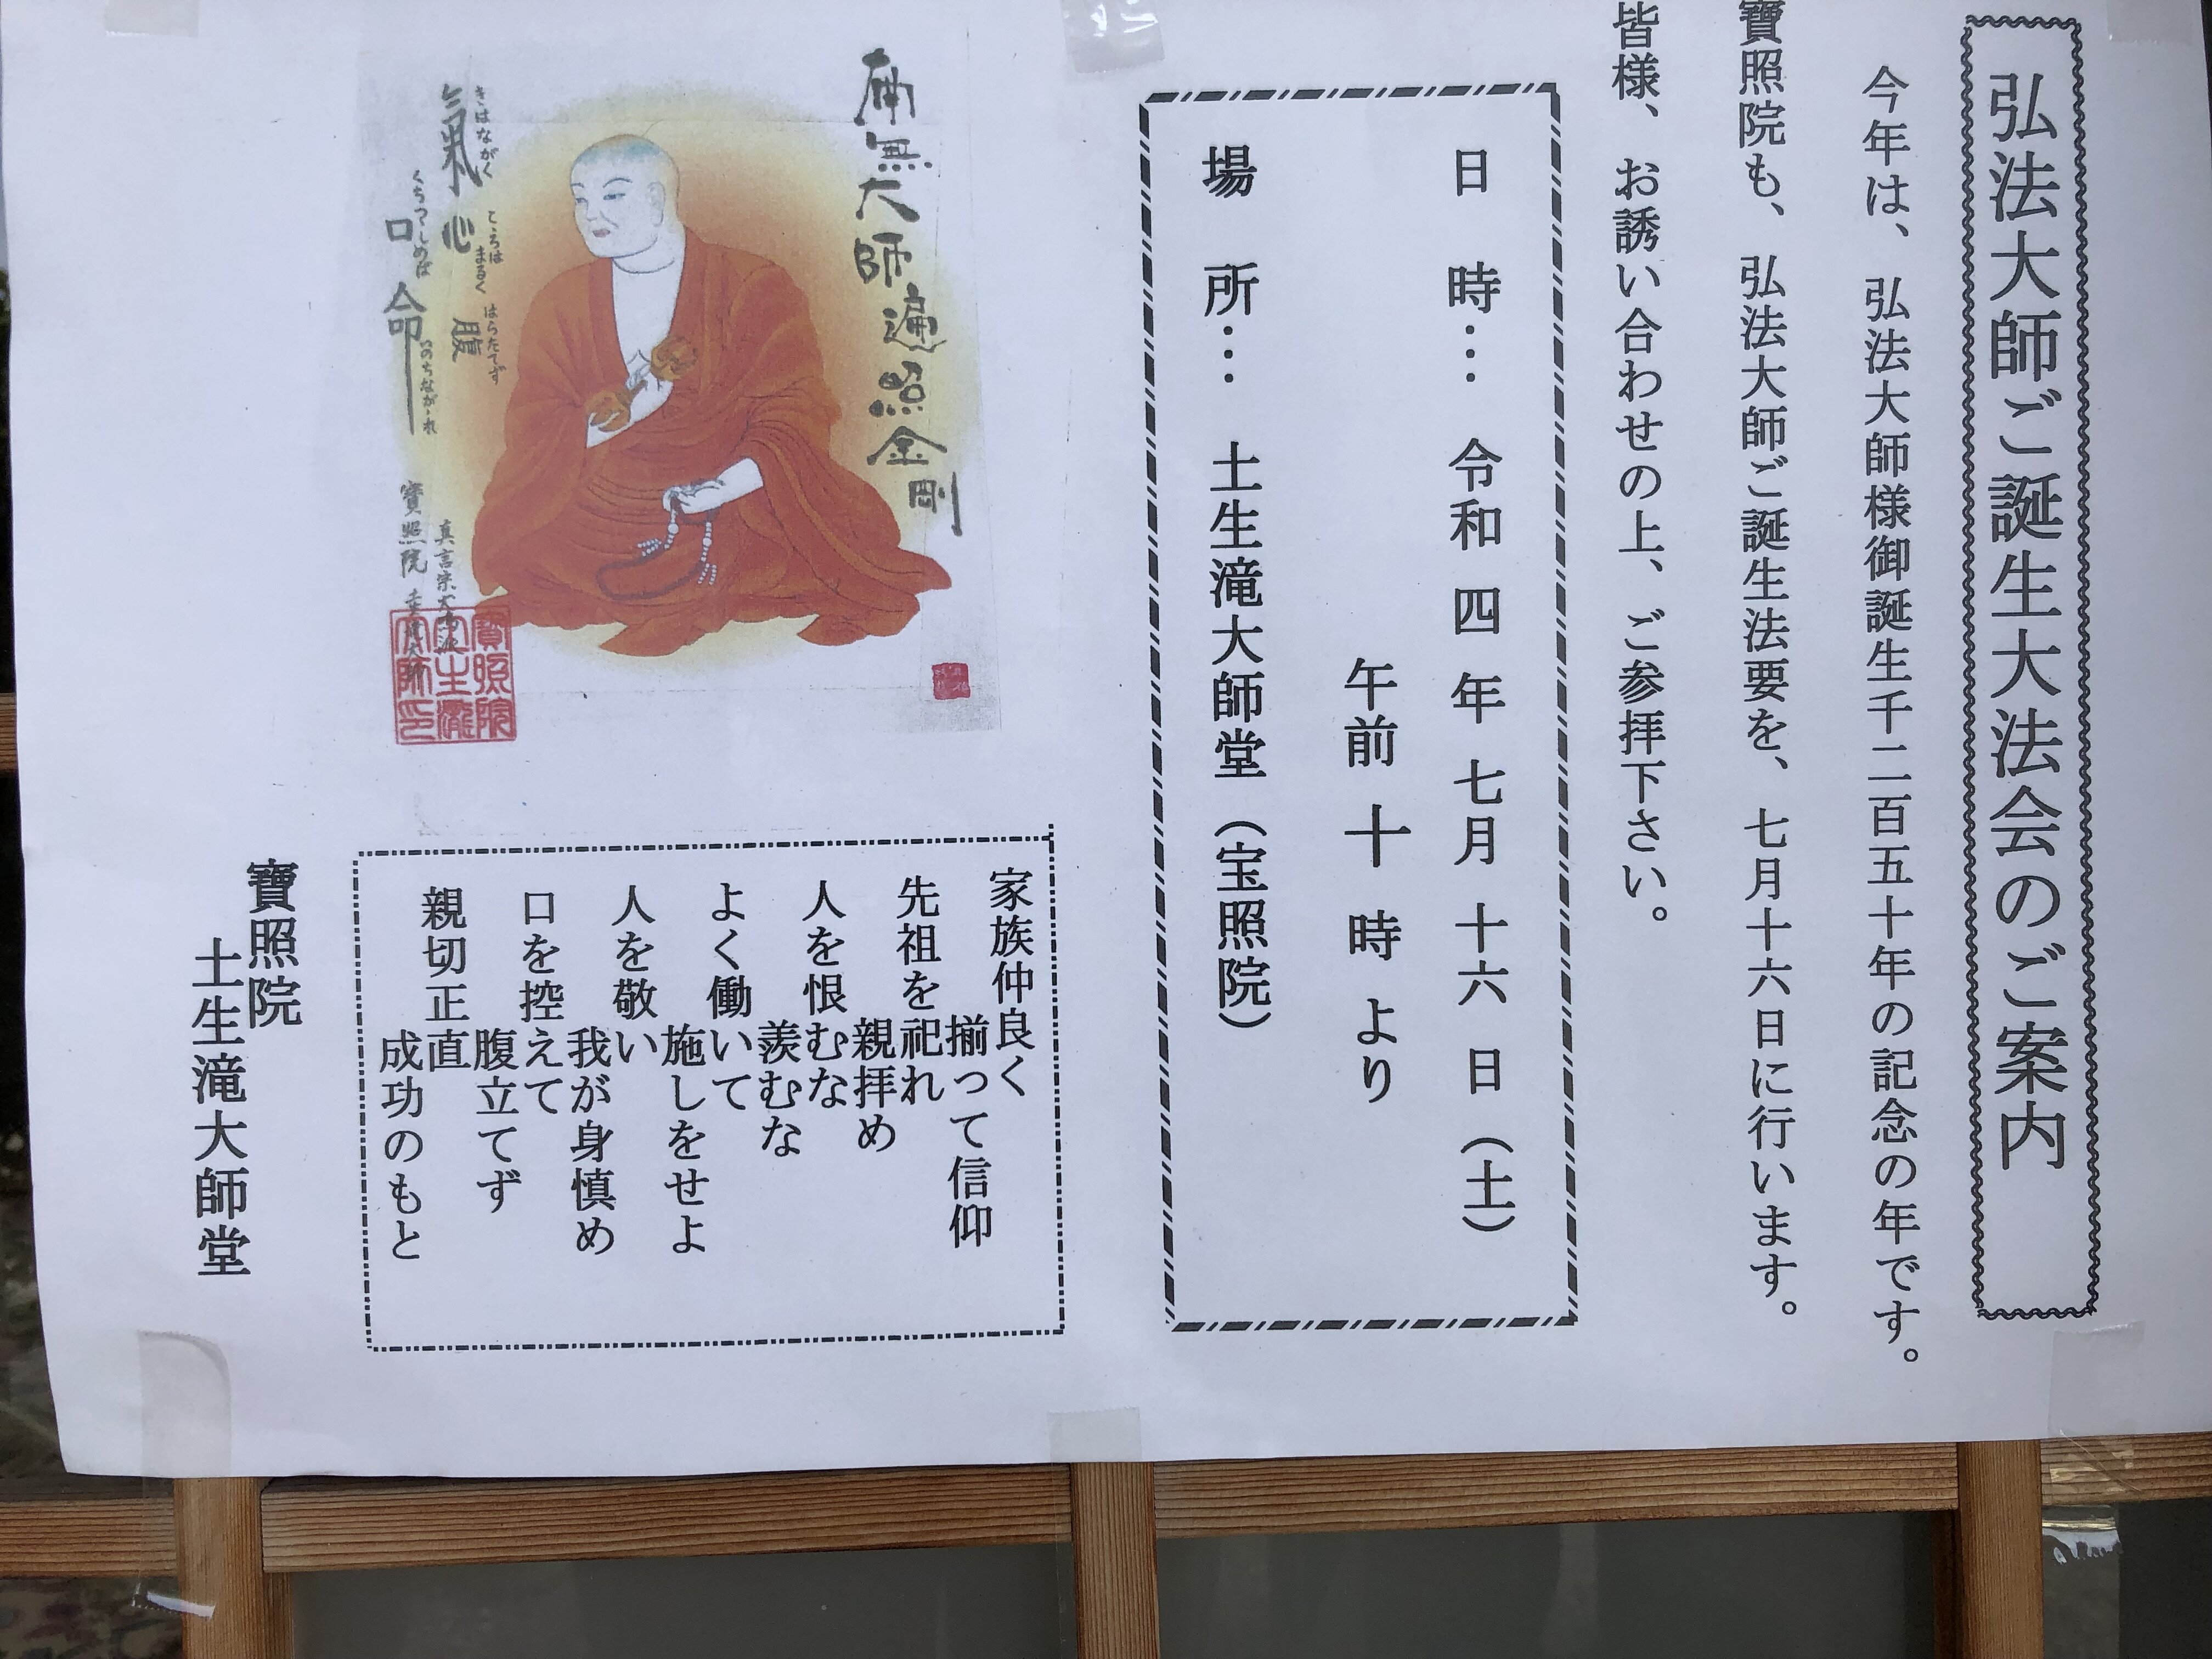 弘法大師ご誕生大法会のご案内
今年は、弘法大師様御誕生千二百五十年の記念の年です。
寶照院も、弘法大師ご誕生法要を、七月十六日に行います。
皆様、お誘い合わせの上、ご参拝下さい。
日時… 令和四年七月十六日(土)
午前十時より
場所… 土生滝大師堂(宝照院)
南無大師遍照金剛
きはながく こころは まるく はらたてず
氣 心 腹
くちつつしめば いのちながかれ
口 命
真言宗
寶照院
寶照院
土生瀧
大師印
家族仲良く
揃って信仰
先祖を祀れ
親拝め
人を恨むな
羨むな
よく働いて
施しをせよ
人を敬い
我が身慎め
口を控えて
腹立てず
親切正直
成功のもと
寶照院
土生滝大師堂